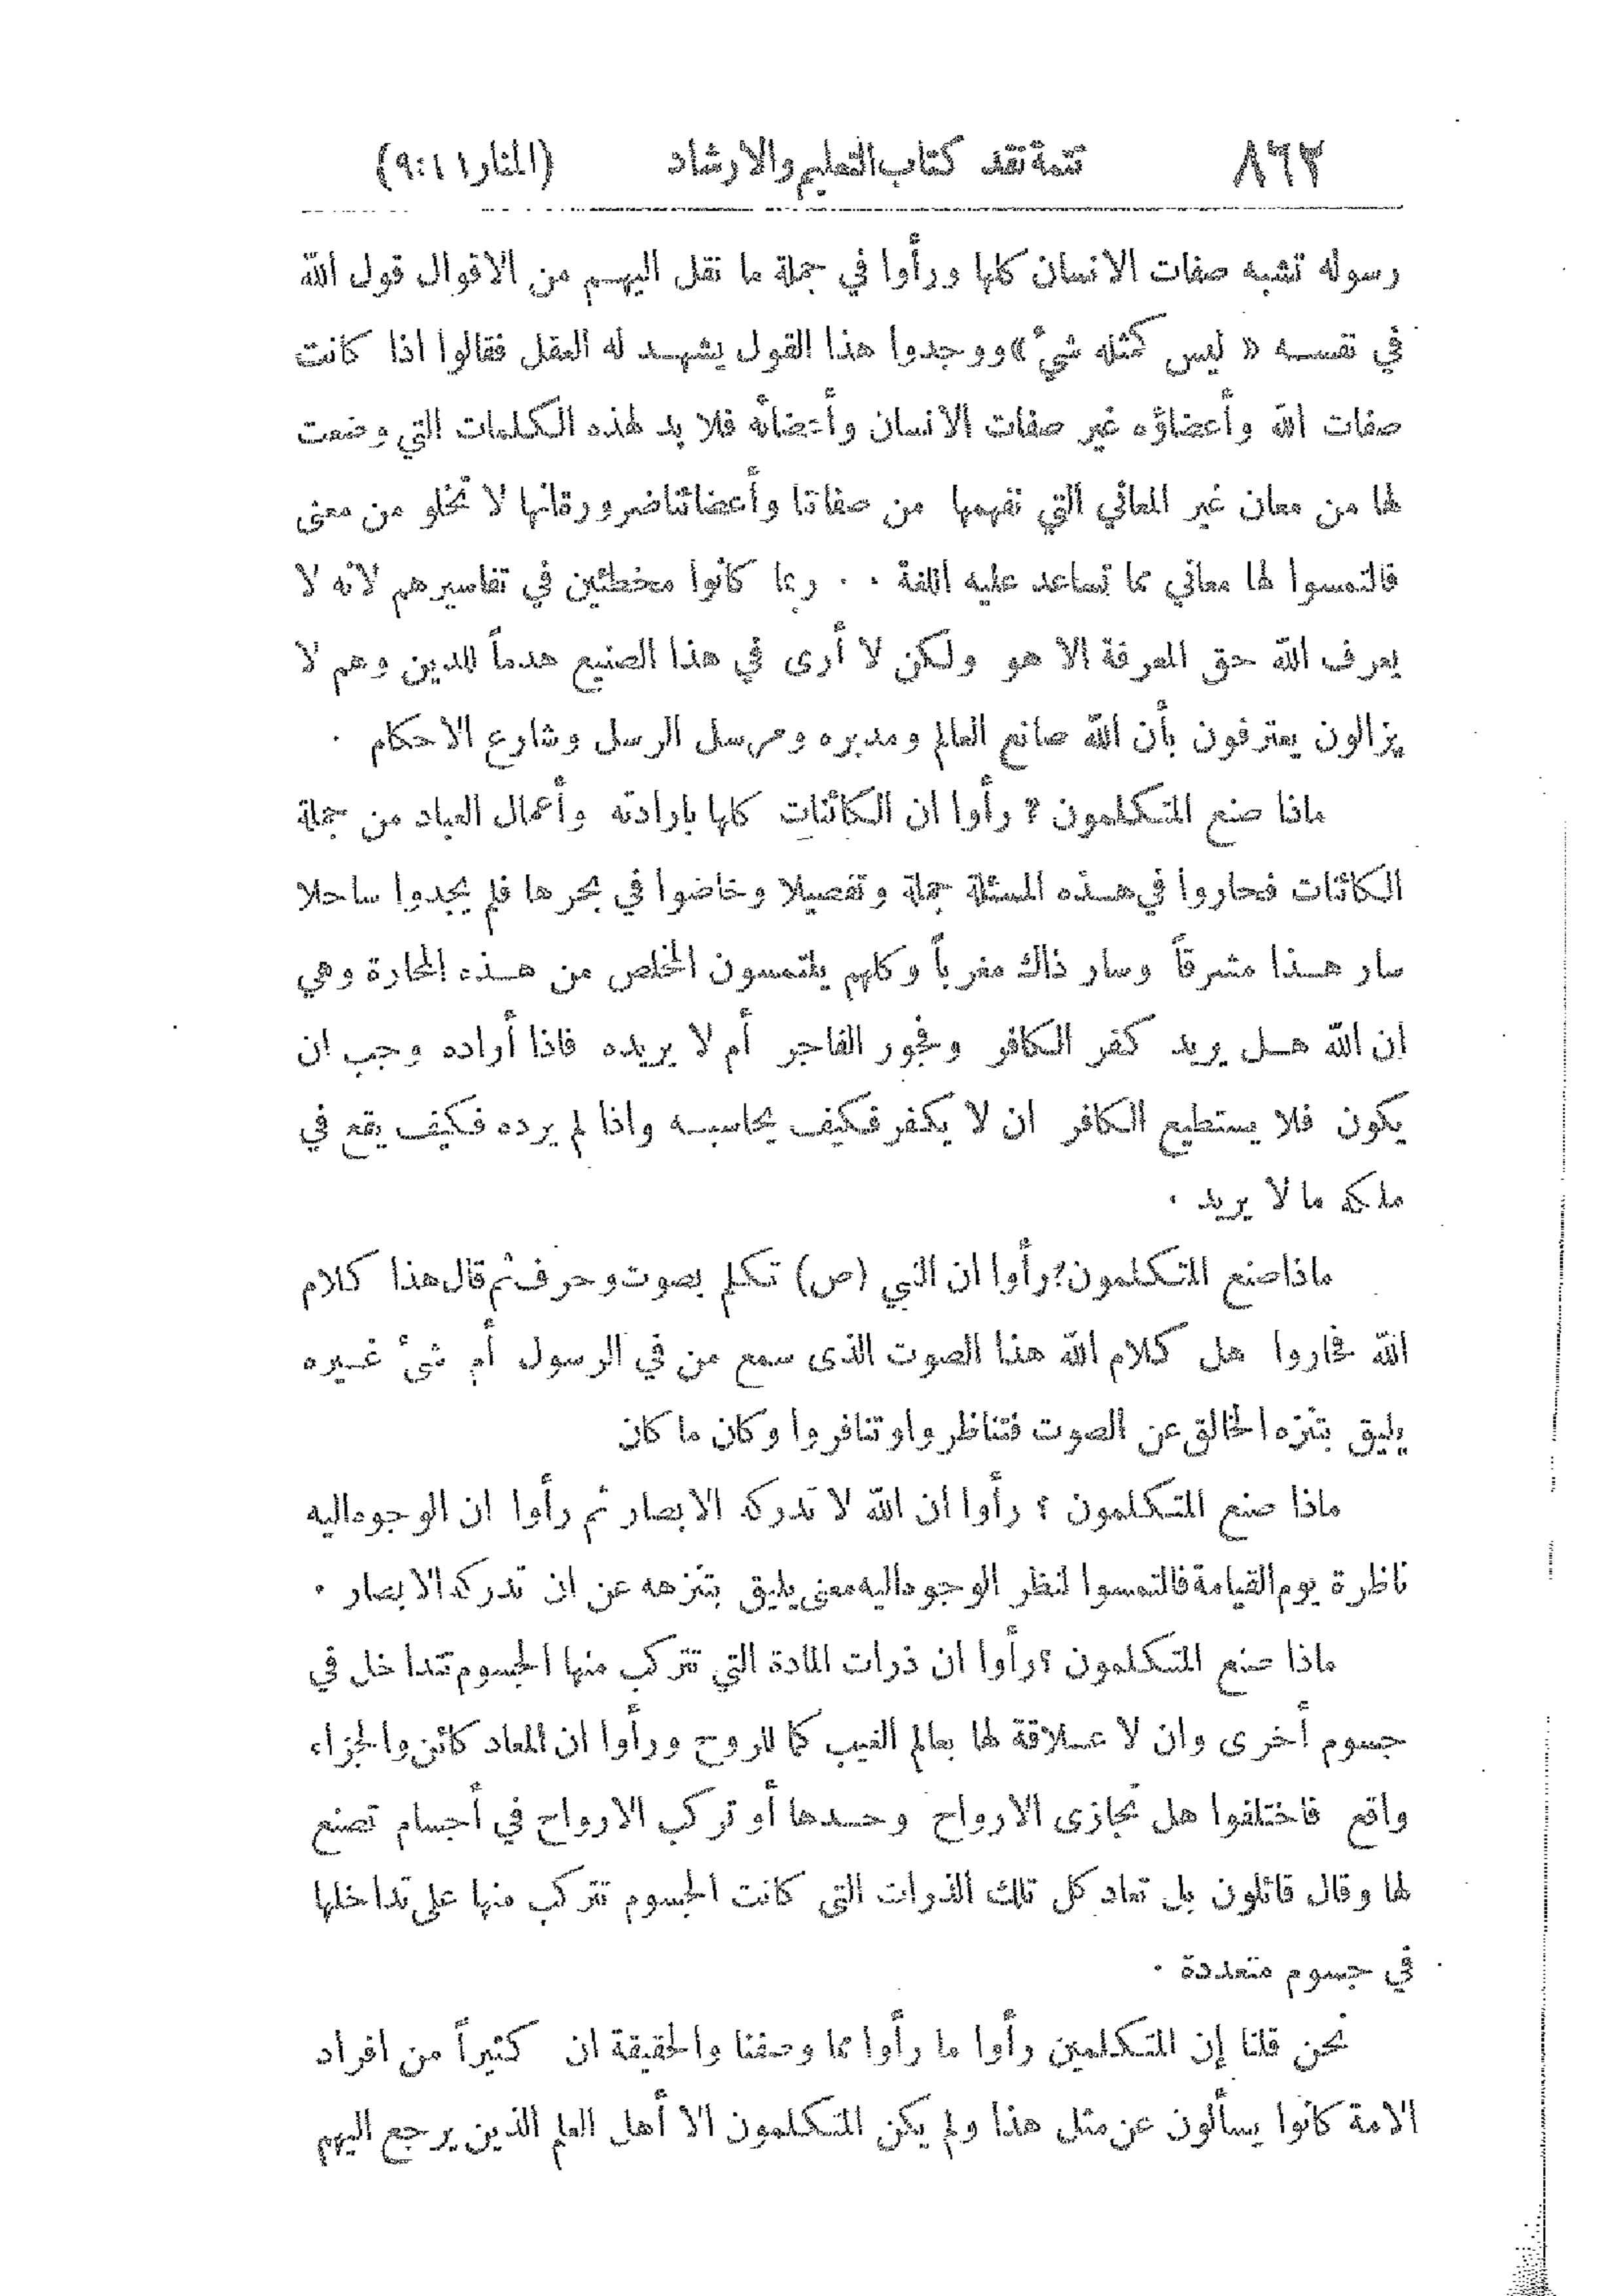 ٨٦٢ تتمة نقد كتاب التعليم والارشاد (المنار ١١:٩)
رسوله تشبه صفات الانسان كلها ورأوا في جملة ما نقل اليهم من الاقوال قول الله
في نفسه « ليس كمثله شيء » ووجدوا هذا القول يشهد له العقل فقالوا اذا كانت
صفات الله وأعضاؤه غير صفات الانسان وأعضائه فلا بد لهذه الكلمات التي وضعت
لها من معان غير المعاني التي نفهمها من صفاتنا وأعضائنا ضرورة انها لا تخلو من معنى
فالتمسوا لها معاني مما تساعد عليه اللغة . . ربما كانوا مخطئين في تفاسيرهم لانه لا
يعرف الله حق المعرفة الا هو ولكن لا أرى في هذا الصنيع هدماً للدين وهم لا
يزالون يعترفون بأن الله صانع العالم ومدبره ومرسل الرسل وشارع الاحكام .
ماذا صنع المتكلمون ؟ رأوا ان الكائنات كلها بارادته وأعمال العباد من جملة
الكائنات فحاروا في هذه المسئلة جملة وتفصيلا وخاضوا في بحرها فلم يجدوا ساحلا
سار هذا مشرقاً وسار ذاك مغرباً وكلهم يلتمسون المخلص من هذه المحارة وهي
ان الله هل يريد كفر الكافر وفجور الفاجر أم لا يريده فاذا أراده وجب ان
يكون فلا يستطيع الكافر ان لا يكفر فكيف يحاسبه واذا لم يرده فكيف يقع في
ملكه ما لا يريد .
ماذا صنع المتكلمون؟ رأوا ان النبي (ص) تكلم بصوت وحرف ثم قال هذا كلام
الله فحاروا هل كلام الله هذا الصوت الذى سمع من في الرسول أم شئ غيره
يليق بتنزه الخالق عن الصوت فتناظروا وتنافروا وكان ما كان
ماذا صنع المتكلمون ؟ رأوا ان الله لا تدركه الابصار ثم رأوا ان الوجوه اليه
ناظرة يوم القيامة فالتمسوا لنظر الوجوه اليه معنى يليق بتنزهه عن ان تدركه الابصار .
ماذا صنع المتكلمون ؟ رأوا ان ذرات المادة التي تتركب منها الجسوم تتداخل في
جسوم أخرى وان لا علاقة لها بعالم الغيب كما للروح ورأوا ان المعاد كائن والجزاء
واقع فاختلفوا هل تجازى الارواح وحدها أو تركب الارواح في أجسام تصنع
لها وقال قائلون بل تعاد كل تلك الذرات التي كانت الجسوم تتركب منها على تداخلها
في جسوم متعددة .
نحن قلنا إن المتكلمين رأوا ما رأوا مما وصفنا والحقيقة ان كثيراً من افراد
الامة كانوا يسألون عن مثل هذا ولم يكن المتكلمون الا أهل العلم الذين يرجع اليهم